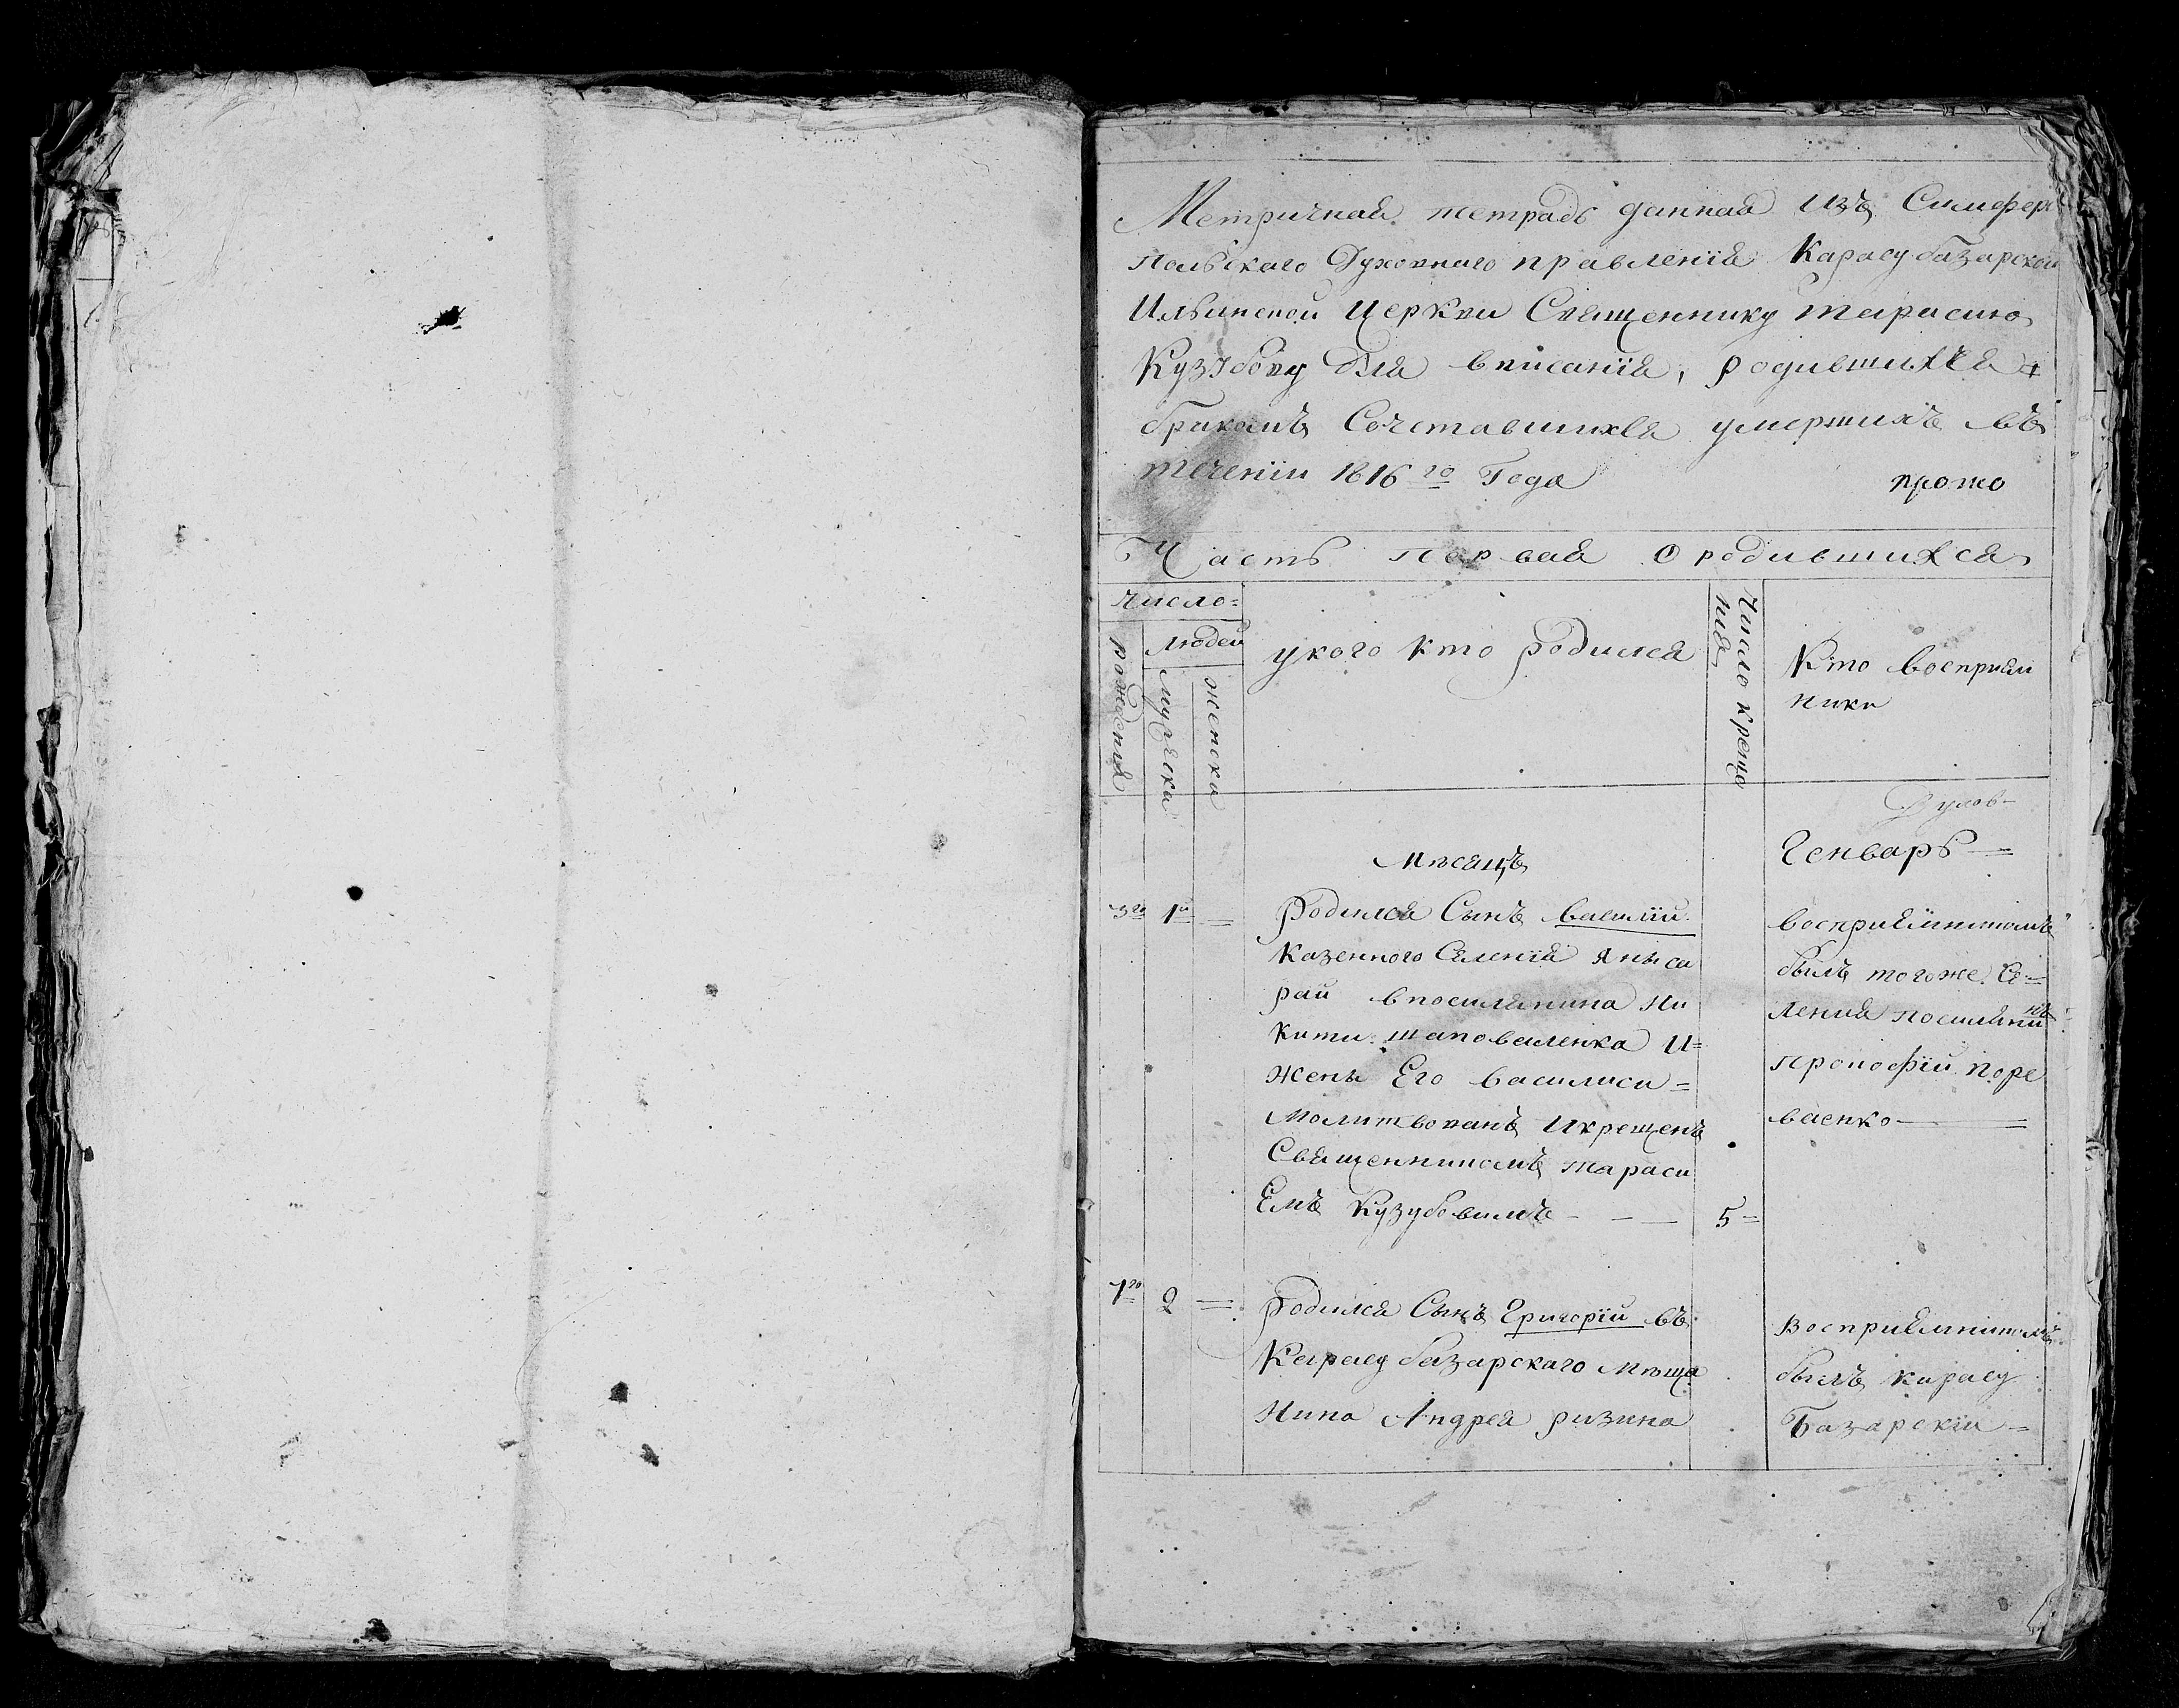 Метричная тетрадь данная изъ Симферо
польского Духовнаго правленія Карасубазарской
Ильинской церкви Священнику Тарасию
Кузубову для вписанія, родившихся
бракомъ Сочетавшихся умершихъ въ
теченіи 1816го Года
прото
Часть первая о родившихся
число
рождения
людей
мужеска
женска
у кого кто родился
Число креще
ния
Кто восприем
ники
Мѣсяцъ
Генварь
3го 1й
Родился Сынъ василій
Казенного Селенія Яныса
рай в поселянина Ни
кити шаповаленка И
жены Его василиси
Молитвованъ Икрещенъ
Священникомъ тараси
Емъ Кузубовимъ
5
восприемникомъ
былъ тогоже Се
ления поселянинъ
прокофій поре
ваенко
7го 2
родился Сынъ Григорій въ
Карасубазарскаго мѣща
нина Андрея ризина
Восприемникомъ
былъ карасу
Базарскіи